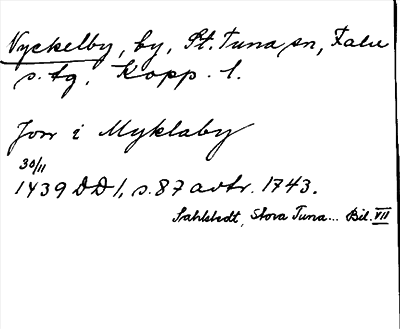 Nyckelby, by, St. Tuna sn, Falu
s. tg, Kopp. l.
Jon i Myklaby
30/11
1439 DD 1, s. 87 avtr. 1743.
Sahlstedt, Stora Tuna... Bil. VII